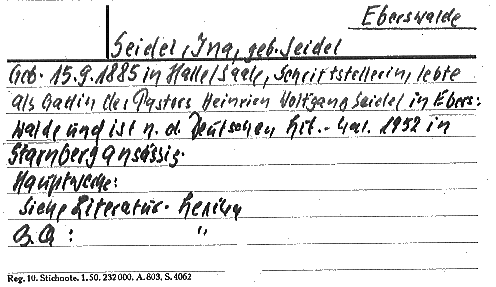 Eberswalde
Seidel, Ina, geb. Seidel
Geb. 15.9.1885 in Halle/Saale, Schriftstellerin, lebte
als Gattin des Pastors Heinrich Wolfgang Seidel in Ebers-
walde und ist n. d. Deutschen Lit.-Kal. 1952 in
Starnberg ansässig.
Hauptwerke:
Siehe Literatur-Lexikon
B.Q: "
Reg. 10. Stichnote. 1. 50. 232000. A. 803, S. 4062